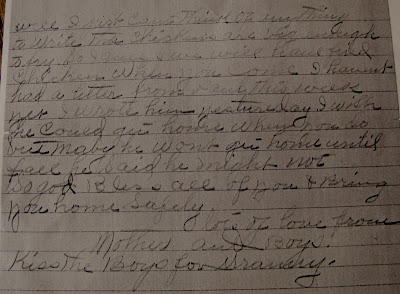 well I just cant think of anything
to write the chickens are big enough
to fry So I guess we will have fried
chicken when you come I havent
had a letter from anything week
yet I wrote him yesturday I wish
he could get home when you do
but maby he wont get home until
fall he said he might not
So god Bless all of you & Bring
you home safely.
lots of love from
Mother and Boys!
Kiss the Boys for Granny.